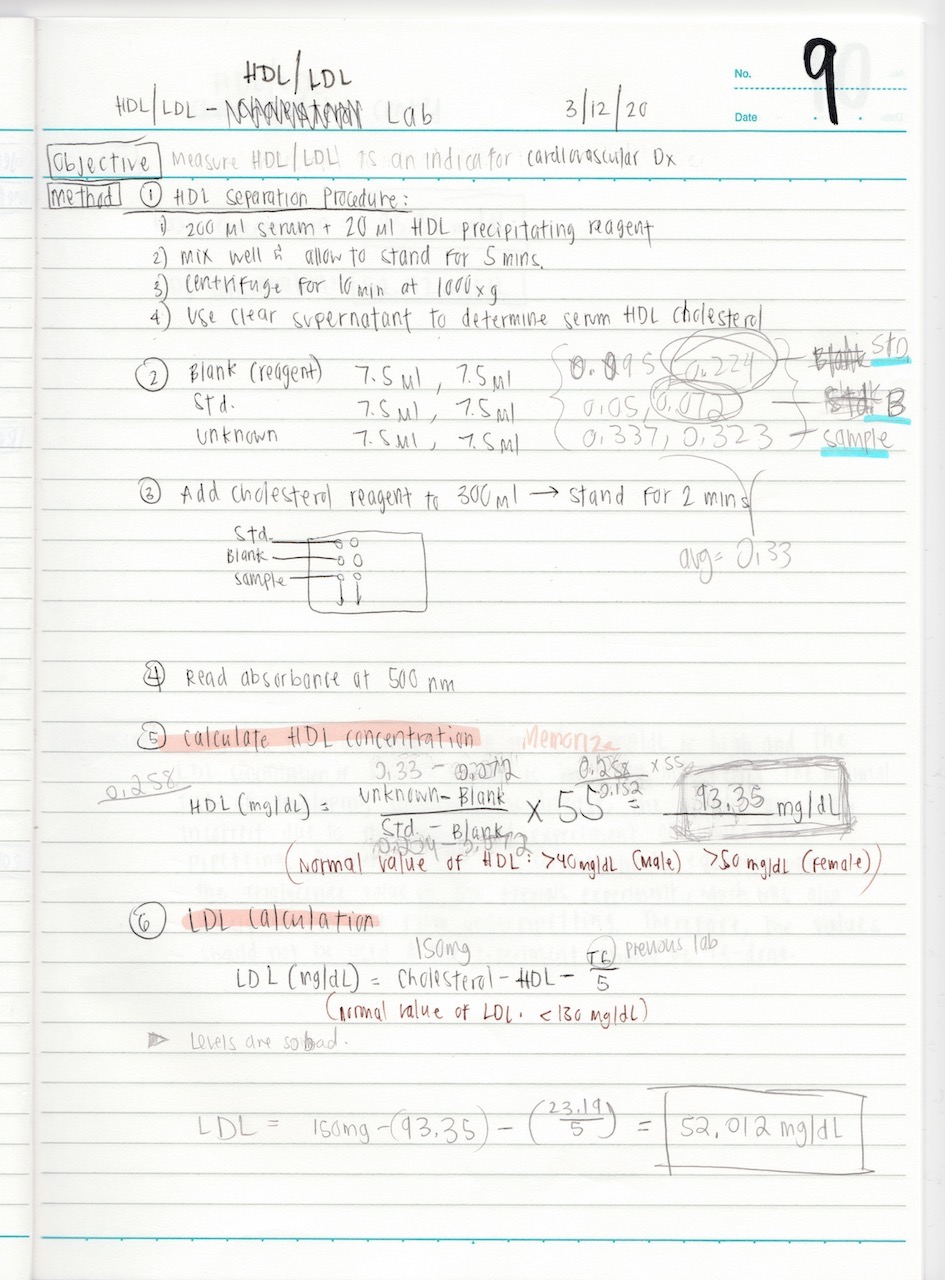 No. 9
HDL/LDL
HDL/LDL - Lab 3/12/20
Date
Objective Measure HDL/LDL is an indicator cardiovascular Dx
Method ① HDL Separation Procedure:
1) 200 µl serum + 20 µl HDL precipitating reagent
2) mix well & allow to stand for 5 mins.
3) Centrifuge for 10 min at 1000xg
4) Use clear supernatant to determine serum HDL cholesterol
② Blank (reagent) 7.5 µl, 7.5 µl 0.095 0.224 - Blank STD
Std. 7.5 µl, 7.5 µl 0.05, 0.072 - Std B
unknown 7.5 µl, 7.5 µl 0.337, 0.323 - sample
③ Add cholesterol reagent to 300 µl → stand for 2 mins
avg = 0.33
Std.
Blank
sample
④ Read absorbance at 500 nm
⑤ Calculate HDL concentration Memorize
0.258 0.33 - 0.072 0.258 x 55
0.152
HDL (mg/dL) = unknown - Blank / Std. - Blank × 55 = 93.35 mg/dL
0.224 - 0.072
(Normal value of HDL: >40 mg/dL (Male) >50 mg/dL (Female))
⑥ LDL Calculation
150mg TG Previous lab
LDL (mg/dL) = Cholesterol - HDL - TG/5
(normal value of LDL. <130 mg/dL)
Levels are so bad.
LDL = 150mg - (93.35) - (23.19/5) = 52.012 mg/dL